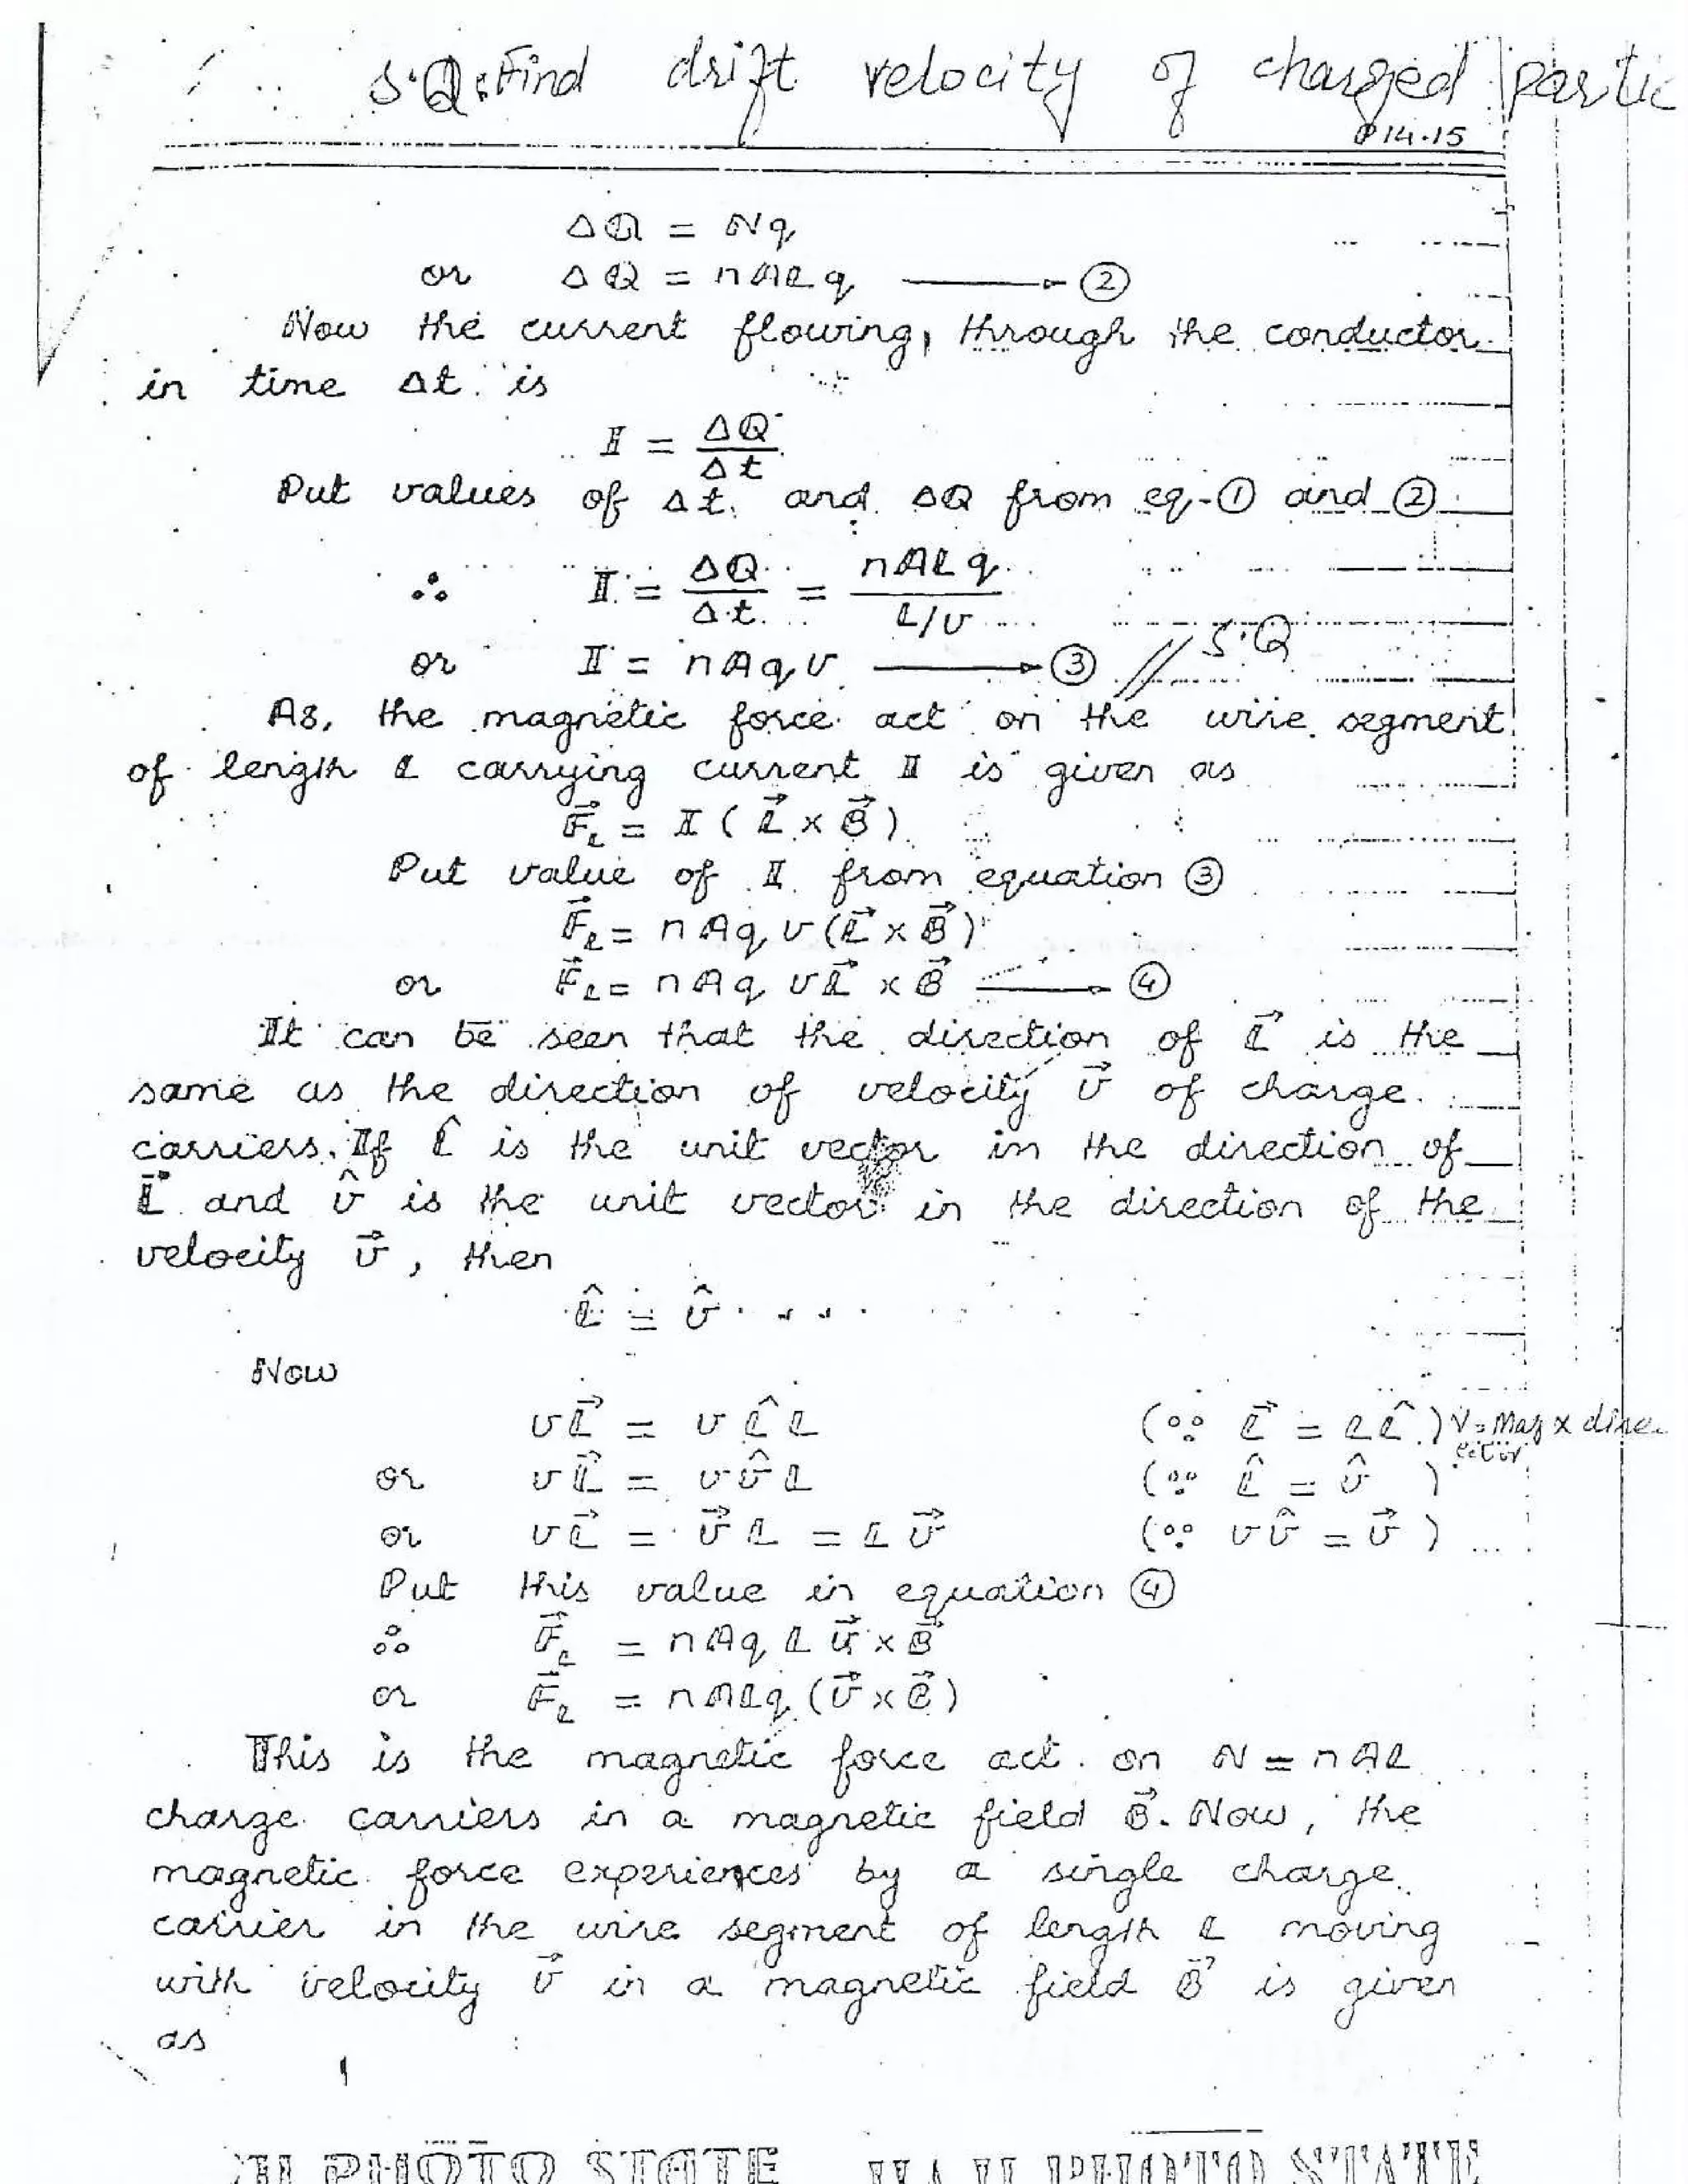 S.Q: Find drift velocity of charged partic
P 14.15
ΔQ = Nq
or ΔQ = nALq ⟶ ②
Now the current flowing, through the conductor
in time Δt is
I = ΔQ/Δt
Put values of Δt and ΔQ from eq-① and ②
∴ I = ΔQ/Δt = nALq / L/v
or I = nAqv ⟶ ③ // S.Q
As, the magnetic force act on the wire segment
of length L carrying current I is given as
F⃗_L = I (L⃗ × B⃗)
Put value of I from equation ③
F⃗_L = nAqv(L⃗ × B⃗)
or F⃗_L = nAq vL⃗ × B⃗ ⟶ ④
It can be seen that the direction of L⃗ is the
same as the direction of velocity v⃗ of charge
carriers. If L̂ is the unit vector in the direction of
L⃗ and v̂ is the unit vector in the direction of the
velocity v⃗, then
L̂ = v̂
Now
vL⃗ = v L̂ L (∵ L⃗ = LL̂) V = Mag x dire
ection
or vL⃗ = v v̂ L (∵ L̂ = v̂)
or vL⃗ = v⃗ L = L v⃗ (∵ v v̂ = v⃗)
Put this value in equation ④
∴ F⃗_L = nAq L v⃗ × B⃗
or F⃗_L = nALq (v⃗ × B⃗)
This is the magnetic force act on N = nAL
charge carriers in a magnetic field B⃗. Now, the
magnetic force experiences by a single charge
carrier in the wire segment of length L moving
with velocity v⃗ in a magnetic field B⃗ is given
as
PHOTO STATE PHOTO STATE